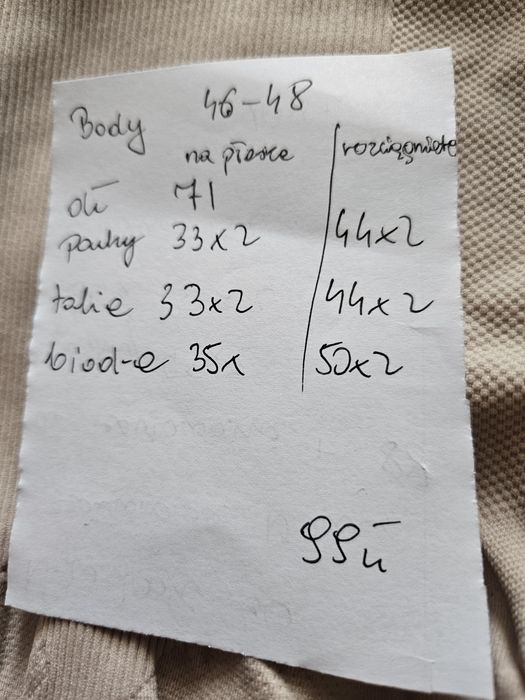 Body 46-48
na płasko rozciągnięte
dł 71
pachy 33x2 44x2
talie 33x2 44x2
biodre 35x 50x2
99zł